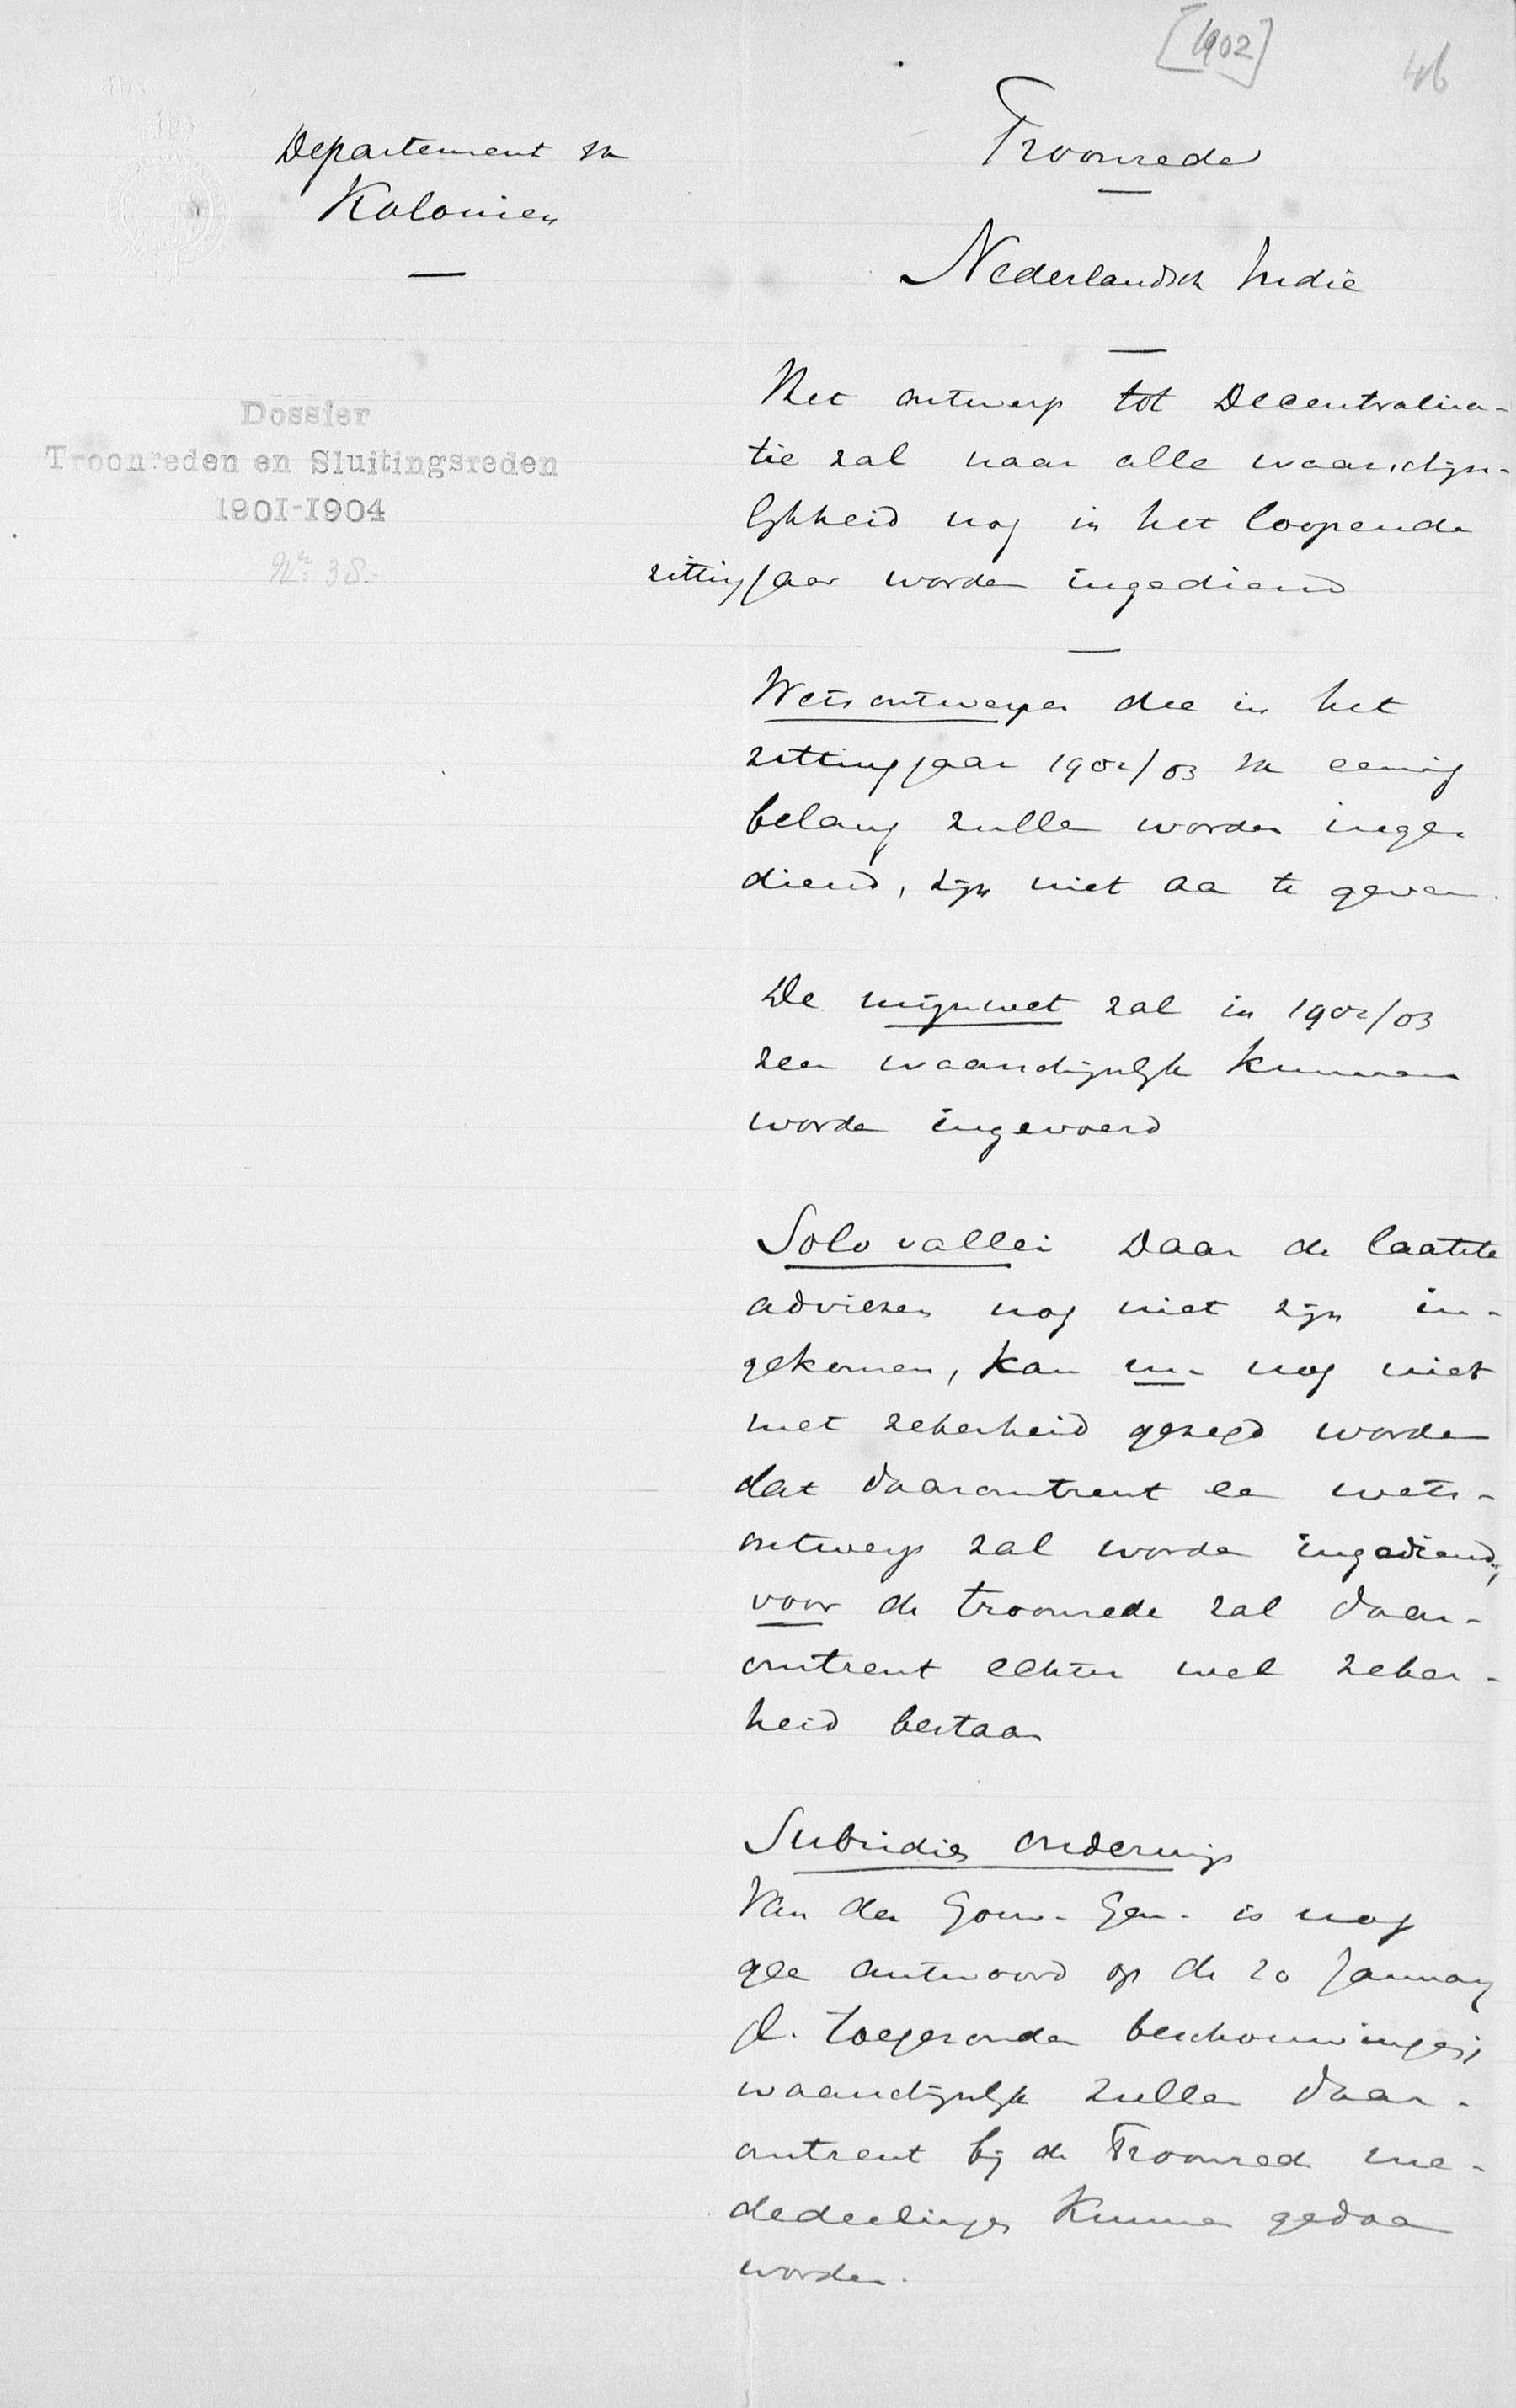 [1902]
46
Departement van
Kolonien
Troonrede
Nederlandsch Indië
Dossier
Troonreden en Sluitingsreden
1901-1904
No. 38.
Het ontwerp tot Decentralisa-
tie zal naar alle waarschijn-
lijkheid nog in het loopende
zittingjaar worden ingediend
Wetsontwerpen die in het
zittingjaar 1902/03 van eenig
belang zullen worden inge-
diend, zijn niet aan te geven.
De mijnwet zal in 1902/03
zeer waarschijnlijk kunnen
worden ingevoerd
Solo vallei Daar de laatste
adviezen nog niet zijn in-
gekomen, kan nu nog niet
met zekerheid gezegd worden
dat daaromtrent een wets-
ontwerp zal worden ingediend,
voor de troonrede zal daar-
omtrent echter wel zeker-
heid bestaan
Subsidies onderwijs
Van den Gouv. Gen. is nog
geen antwoord op de 20 January
jl. toegezonden beschouwingen;
waarschijnlijk zullen daar-
omtrent bij de Troonrede me-
dedeelingen kunnen gedaan
worden.